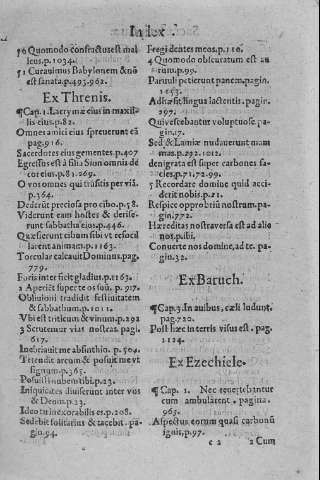 Index
50 Quomodo confractus est mal
leus, p. 1034.
51 Curauimus Babylonem & nõ
est sanata. p. 493. 962.
Ex Threnis.
¶Cap. 1. Lacrymæ eius in maxil-
lis eius. p. 82.
Omnes amici eius spreuerunt eã
pag. 916.
Sacerdotes eius gementes. p. 407
Egressus est à filia Sion omnis de
cor eius, p. 81. 269.
O vos omnes qui trãsitis per viã.
p. 364.
Dederũt preciosa pro cibo. p. 58.
Viderunt eam hostes & derise-
runt sabbatha eius. p. 446.
Quæsierunt cibum sibi vt refocil
larent animam. p. 1163.
Torcular calcauit Dominus, pag.
779.
Foris interficit gladius. p. 1163.
2 Aperiẽt super te os suũ. p. 917.
Obliuioni tradidit festiuitatem
& sabbathum. p. 1011.
Vbi est triticum & vinum. p. 292
3 Scrutemur vias nostras. pagi.
617.
Inebriauit me absinthio. p. 504.
Tetendit arcum & posuit me vt
signum. p. 365.
Posuisti nubem tibi. p. 23.
Iniquitates diuiserunt inter vos
& Deum. p. 23.
Ideo tu inexorabilis es. p. 208.
Sedebit solitarius & tacebit. pa-
gin. 94.
Fregi dentes meos. p. 116.
4 Quomodo obscuratum est au
rum. p. 99.
Paruuli petierunt panem. pagin.
1153.
Adhæsit lingua lactentis. pagin.
297.
Qui vescebantur voluptuose. pa-
gin. 17.
Sed & Lamiæ nudauerunt mam
mas. p. 292. 1012.
denigrata est super carbones fa-
cies. p. 71. 72. 99.
5 Recordare domine quid acci-
derit nobis. p. 21.
Respice opprobriũ nostrum. pa-
gin. 772.
Hæreditas nostra versa est ad alie
nos. p. ibi.
Conuerte nos domine, ad te. pa-
gin. 32.
Ex Baruch.
¶Cap. 3. In auibus, cæli ludunt,
pag. 720.
Post hæc in terris visus est. pag.
1124.
Ex Ezechiele.
¶Cap. 1. Nec reuertebantur
cum ambularent. pagina.
963.
Aspectus eorum quasi carbonũ
ignis. p. 97.
2 Cum